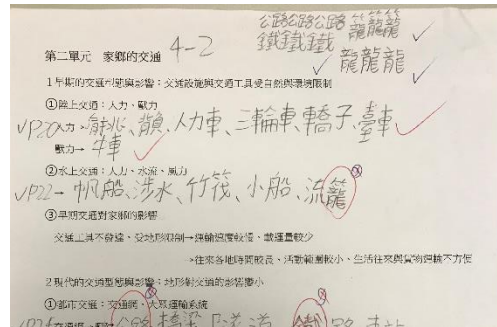 公路公路公路 籠籠籠
鐵鐵鐵鐵 龍龍龍
第二單元 家鄉的交通 4-2
1早期的交通型態與影響：交通設施與交通工具受自然與環境限制
①陸上交通：人力、獸力
VP20人力→ 人力車、三輪車、轎子、臺車
獸力→ 牛車
②水上交通：人力、水流、風力
VP22→帆船、涉水、竹筏、小船、流籠
③早期交通對家鄉的影響
交通工具不發達、受地形限制→運輸速度較慢、載運量較少
→往來各地時間較長、活動範圍較小、生活往來與貨物運輸不方便
2現代的交通型態與影響：地形對交通的影響變小
①都市交通：交通網、大眾運輸系統
公路 橋梁 鐵路